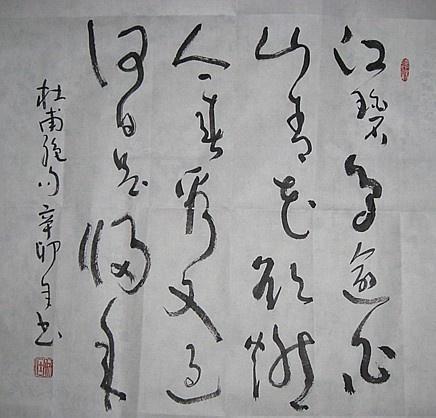 江碧鸟逾白
山青花欲燃
今春看又过
何日是归年
杜甫绝句辛卯年书